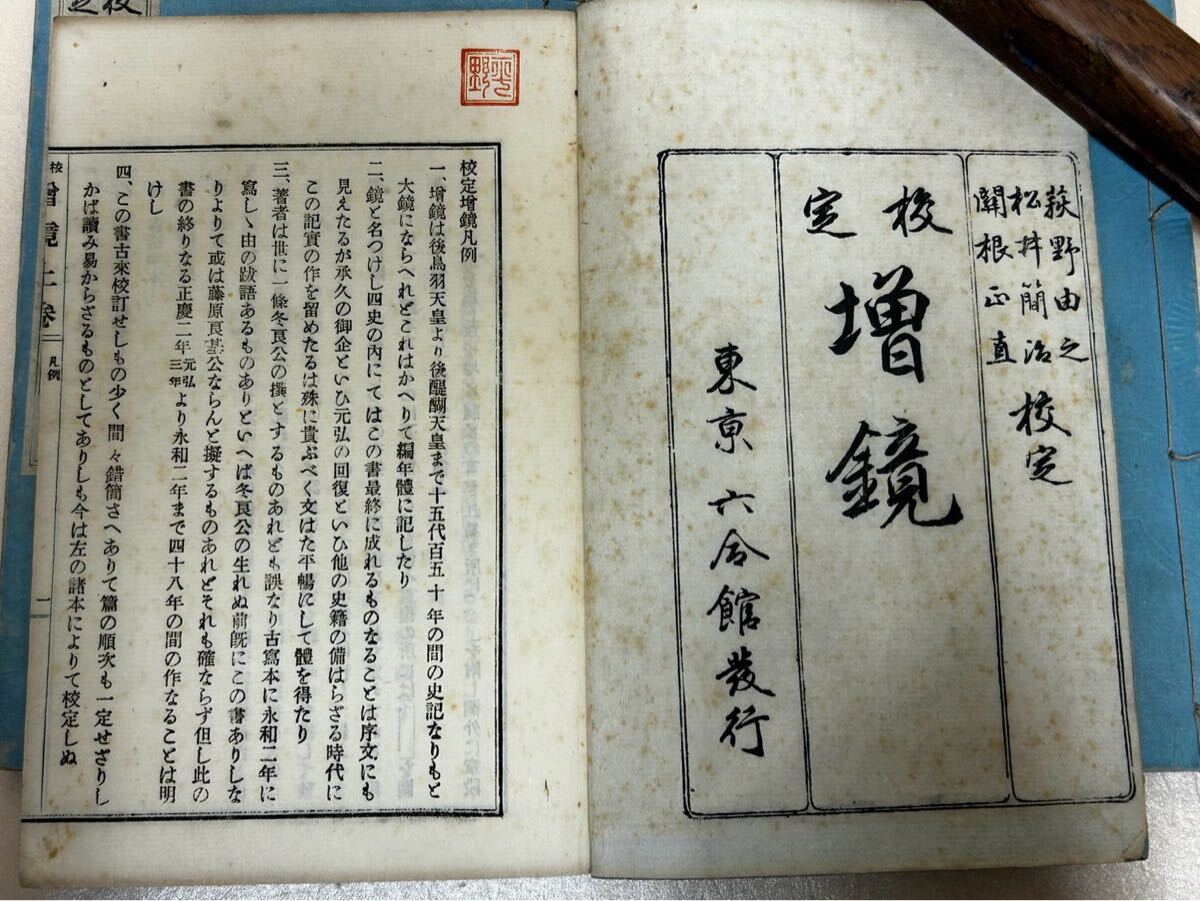 萩野由之
松井簡治
關根正直
校定
校定
增鏡
東京 六合館發行
校定增鏡凡例
一、增鏡は後鳥羽天皇より後醍醐天皇まで十五代百五十年の間の史記なりもと
大鏡にならへれどこれはかへりて編年體に記したり
二、鏡と名つけし四史の內にてはこの書最終に成れるものなることは序文にも
見えたるが承久の御企といひ元弘の回復といひ他の史籍の備はらざる時代に
この記實の作を留めたるは殊に貴ぶべく文はた平暢にして體を得たり
三、著者は世に一條冬良公の撰とするものあれども誤なり古寫本に永和二年に
寫しゝ由の跋語あるものありといへば冬良公の生れぬ前旣にこの書ありしな
りよりて或は藤原良基公ならんと擬するものあれどそれも確ならず但し此の
書の終りなる正慶二年元弘三年より永和二年まで四十八年の間の作なることは明
けし
四、この書古來校訂せしもの少く間々錯簡さへありて篇の順次も一定せざりし
かば讀み易からざるものとしてありしも今は左の諸本によりて校定しぬ
校 增鏡上卷 凡例 一
校定